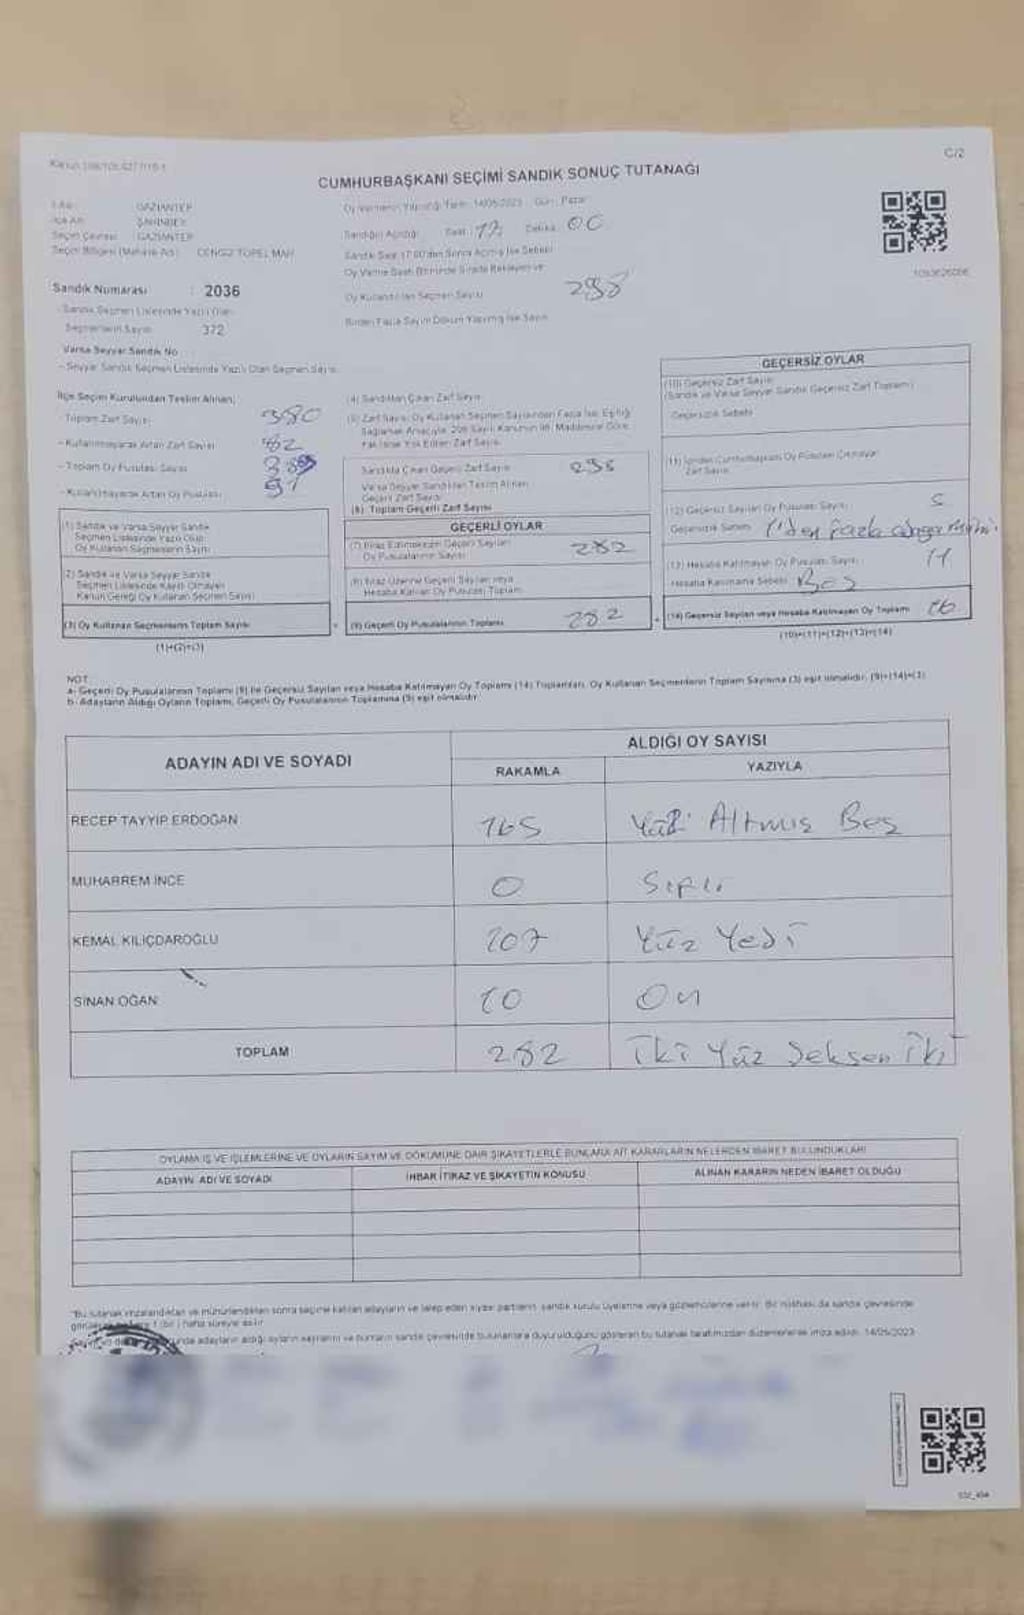 C/2
CUMHURBAŞKANI SEÇİMİ SANDIK SONUÇ TUTANAĞI
GAZİANTEP
ŞAHİNBEY
Seçim Çevresi : GAZİANTEP
Seçim Bölgesi (Mahalle Adı) : CENGİZ TOPEL MAH
Sandık Numarası : 2036
- Sandık Seçmen Listesinde Yazılı Olan
Seçmenlerin Sayısı 372
Varsa Seyyar Sandık No
- Seyyar Sandık Seçmen Listesinde Yazılı Olan Seçmen Sayısı
Oy Vermenin Yapıldığı Tarih: 14/05/2023 Gün: Pazar
Sandığın Açıldığı Saat: 17 Dakika: 00
Sandık Saat 17.00'den Sonra Açılmış İse Sebebi
Oy Verme Saati Bitiminde Sırada Bekleyen ve
Oy Kullandırılan Seçmen Sayısı 298
Birden Fazla Sayım Döküm Yapılmış İse Sayısı
İlçe Seçim Kurulundan Teslim Alınan;
Toplam Zarf Sayısı 380
- Kullanılmayarak Artan Zarf Sayısı 82
- Toplam Oy Pusulası Sayısı
- Kullanılmayarak Artan Oy Pusulası 91
(1) Sandık ve Varsa Seyyar Sandık
Seçmen Listesinde Yazılı Olup
Oy Kullanan Seçmenlerin Sayısı
(2) Sandık ve Varsa Seyyar Sandık
Seçmen Listesinde Kayıtlı Olmayan
Kanun Gereği Oy Kullanan Seçmen Sayısı
(3) Oy Kullanan Seçmenlerin Toplam Sayısı
(1)+(2)=(3)
(4) Sandıktan Çıkan Zarf Sayısı
(5) Zarf Sayısı Oy Kullanan Seçmen Sayısından Fazla İse, Eşitliği
Sağlamak Amacıyla, 298 Sayılı Kanunun 98. Maddesine Göre
Yakılarak Yok Edilen Zarf Sayısı
Sandıkta Çıkan Geçerli Zarf Sayısı 298
Varsa Seyyar Sandıktan Teslim Alınan
Geçerli Zarf Sayısı
(6) Toplam Geçerli Zarf Sayısı
GEÇERLİ OYLAR
(7) İtiraz Edilmeksizin Geçerli Sayılan
Oy Pusulalarının Sayısı 282
(8) İtiraz Üzerine Geçerli Sayılan veya
Hesaba Katılan Oy Pusulası Toplamı
(9) Geçerli Oy Pusulalarının Toplamı 282
GEÇERSİZ OYLAR
(10) Geçersiz Zarf Sayısı
(Sandık ve Varsa Seyyar Sandık Geçersiz Zarf Toplamı)
Geçersizlik Sebebi
(11) İçinden Cumhurbaşkanı Oy Pusulası Çıkmayan
Zarf Sayısı
(12) Geçersiz Sayılan Oy Pusulası Sayısı 5
Geçersizlik Sebebi 1'den fazla
(13) Hesaba Katılmayan Oy Pusulası Sayısı 11
Hesaba Katılmama Sebebi Boş
(14) Geçersiz Sayılan veya Hesaba Katılmayan Oy Toplamı 16
(10)+(11)+(12)+(13)=(14)
NOT:
a- Geçerli Oy Pusulalarının Toplamı (9) ile Geçersiz Sayılan veya Hesaba Katılmayan Oy Toplamı (14) Toplamları, Oy Kullanan Seçmenlerin Toplam Sayısına (3) eşit olmalıdır. (9)+(14)=(3)
b- Adayların Aldığı Oyların Toplamı, Geçerli Oy Pusulalarının Toplamına (9) eşit olmalıdır.
ADAYIN ADI VE SOYADI
ALDIĞI OY SAYISI
RAKAMLA YAZIYLA
RECEP TAYYİP ERDOĞAN 165 Yüz Altmış Beş
MUHARREM İNCE 0 Sıfır
KEMAL KILIÇDAROĞLU 107 Yüz Yedi
SİNAN OĞAN 10 On
TOPLAM 282 İki Yüz Seksen İki
OYLAMA İŞ VE İŞLEMLERİNE VE OYLARIN SAYIM VE DÖKÜMÜNE DAİR ŞİKAYETLERLE BUNLARA AİT KARARLARIN NELERDEN İBARET BULUNDUKLARI
ADAYIN ADI VE SOYADI İHBAR İTİRAZ VE ŞİKAYETİN KONUSU ALINAN KARARIN NEDEN İBARET OLDUĞU
*Bu tutanak imzalandıktan ve mühürlendikten sonra seçime katılan adayların ve talep eden siyasi partilerin sandık kurulu üyelerine veya gözlemcilerine verilir. Bir nüshası da sandık çevresinde
1 (bir) hafta süreyle asılır.
adayların aldığı oyların sayılarını ve bunların sandık çevresinde bulunanlara duyurulduğunu gösteren bu tutanak tarafımızdan düzenlenerek imza edildi. 14/05/2023